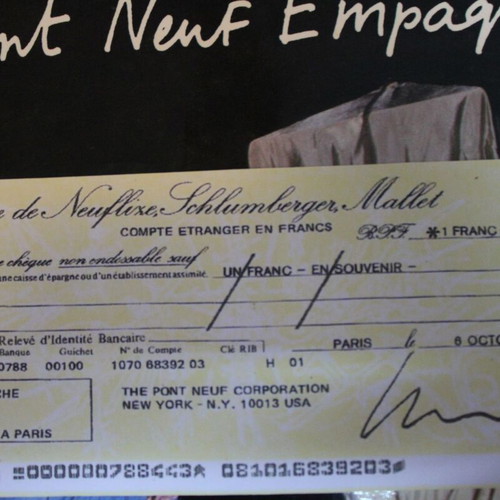 nt Neuf Empaq
e de Neuflize, Schlumberger, Mallet
COMPTE ETRANGER EN FRANCS
B.P.F. *1 FRANC
chèque non endossable sauf
une caisse d'épargne ou d'un établissement assimilé.
UN/FRANC - EN/SOUVENIR -
Relevé d'Identité Bancaire
Banque Guichet N° de Compte Clé RIB
0788 00100 1070 68392 03 H 01
PARIS le 6 OCTO
CHE
THE PONT NEUF CORPORATION
NEW YORK - N.Y. 10013 USA
A PARIS
0000000788443 081016839203